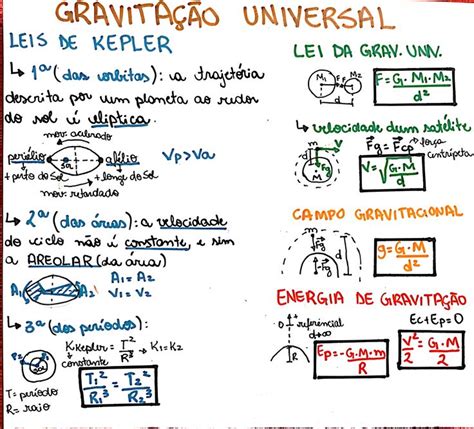 GRAVITAÇÃO UNIVERSAL
LEIS DE KEPLER
↳ 1ª (das orbitas): a trajetória
descrita por um planeta ao redor
do sol é elíptica.
mov. acelerado
periélio
Sol
afélio
Vp>Va
+ perto do Sol
+ longe do Sol
mov. retardado
↳ 2ª (das áreas): a velocidade
do ciclo não é constante, e sim
a AREOLAR (da área)
A₁
A₂
A₁ = A₂
V₁ = V₂
↳ 3ª (dos períodos):
P₂
Sol
K kepler = T²/R³ → K₁=K₂
constante
T = período
R = raio
T₁²/R₁³ = T₂²/R₂³
LEI DA GRAV. UNIV.
M₁ F F M₂
d
F = G·M₁·M₂/d²
↳ velocidade dum satélite
m
V
d
Fg
M
Fg = Fcp → força
centrípeta
V = √(G·M/d)
CAMPO GRAVITACIONAL
Fg
Fg
d
g = G·M/d²
ENERGIA DE GRAVITAÇÃO
0 referencial
d→∞
R
Ec+Ep=0
Ep = -G·M·m/R
V²/2 = G·M/2